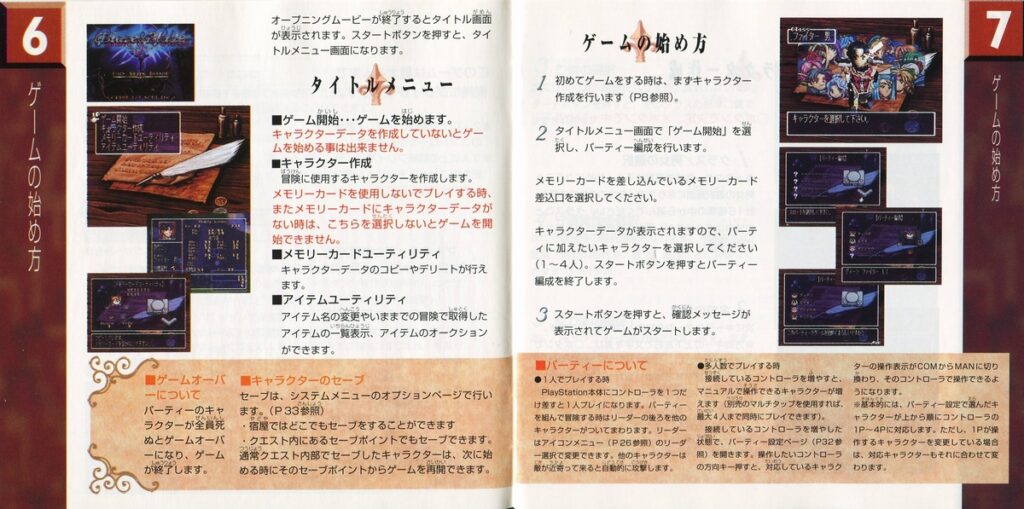 6
ゲームの始め方
オープニングムービーが終了するとタイトル画面
が表示されます。スタートボタンを押すと、タイ
トルメニュー画面になります。
タイトルメニュー
■ゲーム開始･･･ゲームを始めます。
キャラクターデータを作成していないとゲー
ムを始める事は出来ません。
■キャラクター作成
冒険に使用するキャラクターを作成します。
メモリーカードを使用しないでプレイする時、
またメモリーカードにキャラクターデータが
ない時は、こちらを選択しないとゲームを開
始できません。
■メモリーカードユーティリティ
キャラクターデータのコピーやデリートが行え
ます。
■アイテムユーティリティ
アイテム名の変更やいままでの冒険で取得した
アイテムの一覧表示、アイテムのオークション
ができます。
ゲーム開始
キャラクター作成
メモリーカードユーティリティ
アイテムユーティリティ
■ゲームオーバ
ーについて
パーティーのキャ
ラクターが全員死
ぬとゲームオーバ
ーになり、ゲーム
が終了します。
■キャラクターのセーブ
セーブは、システムメニューのオプションページで行い
ます。（P33参照）
・宿屋ではどこでもセーブをすることができます
・クエスト内にあるセーブポイントでもセーブできます。
通常クエスト内部でセーブしたキャラクターは、次に始
める時にそのセーブポイントからゲームを再開できます。
7
ゲームの始め方
ゲームの始め方
1 初めてゲームをする時は、まずキャラクター
作成を行います（P8参照）。
2 タイトルメニュー画面で「ゲーム開始」を選
択し、パーティー編成を行います。
メモリーカードを差し込んでいるメモリーカード
差込口を選択してください。
キャラクターデータが表示されますので、パーテ
ィに加えたいキャラクターを選択してください
（1～4人）。スタートボタンを押すとパーティー
編成を終了します。
3 スタートボタンを押すと、確認メッセージが
表示されてゲームがスタートします。
ファイター 男
キャラクターを選択して下さい。
■パーティーについて
●1人でプレイする時
PlayStation本体にコントローラを1つだ
け差すと1人プレイになります。パーティー
を組んで冒険する時はリーダーの後ろを他の
キャラクターがついてまわります。リーダー
はアイコンメニュー（P26参照）のリーダ
ー選択で変更できます。他のキャラクターは
敵が近寄って来ると自動的に攻撃します。
●多人数でプレイする時
接続しているコントローラを増やすと、
マニュアルで操作できるキャラクターが増
えます（別売のマルチタップを使用すれば、
最大4人まで同時にプレイできます）。
接続しているコントローラを増やした
状態で、パーティー設定ページ（P32参
照）を開きます。操作したいコントローラ
の方向キー押すと、対応しているキャラク
ターの操作表示がCOMからMANに切り
換わり、そのコントローラで操作できるよ
うになります。
※基本的には、パーティー設定で選んだキ
ャラクターが上から順にコントローラの
1P～4Pに対応します。ただし、1Pが操
作するキャラクターを変更している場合
は、対応キャラクターもそれに合わせて変
わります。